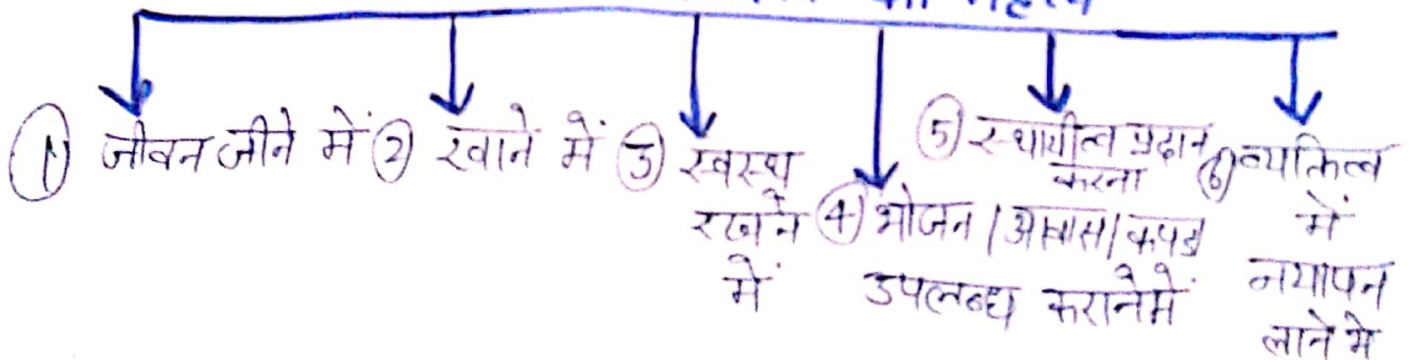 का महत्व
① जीवन जीने में
② खाने में
③ स्वस्थ
रखने
में
④ भोजन / आवास / कपडा
उपलब्ध कराने में
⑤ स्थायीत्व प्रदान
करना
⑥ व्यक्तित्व
में
नयापन
लाने मे